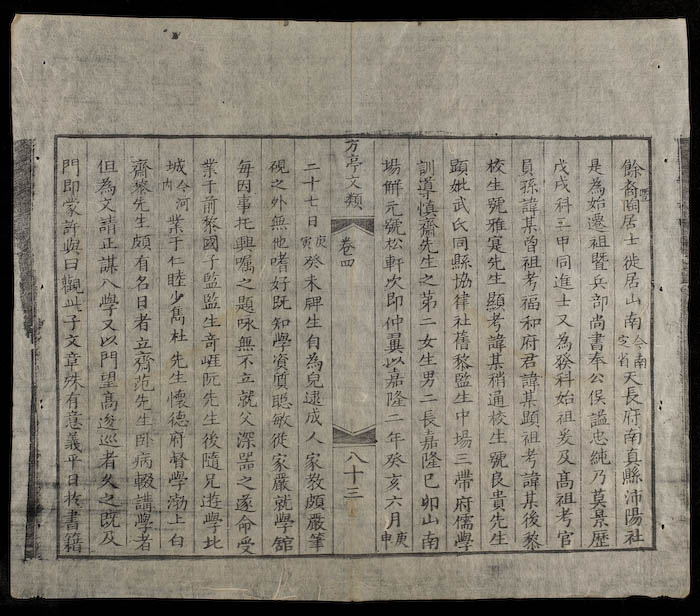 餘裔陶居士徙居山南今南定省天長府南真縣沛陽社
是為始遷祖暨兵部尚書奉公俁謚忠純乃莫景歷
戊戌科三甲同進士又為發科始祖爰及高祖考官
員孫諱某曾祖考福和府君諱某顯祖考諱某後黎
校生號雅寔先生顯考諱某稍通校生號良貴先生
顯妣武氏同縣協律社舊黎監生中場三帶府儒學
訓導慎齋先生之第二女生男二長嘉隆己卯山南
場解元號松軒次即仲翼以嘉隆二年癸亥六月庚申
方亭文類
卷四
八十三
二十七日庚寅癸未牌生自為兒逮成人家教頗嚴筆
硯之外無他嗜好既知學資質聰敏從家嚴就學舘
每因事托興囑之題咏無不立就父深器之遂命受
業于前黎國子監監生奇崕阮先生後隨兄遊學北
城今河內業于仁睦少雋杜先生懷德府督學渤上白
齋黎先生頗有名日者立齋范先生卧病輟講學者
但為文請正謀入學又以門望高逡巡者久之既及
門即蒙許與曰觀此子文章殊有意義平日枚書籍